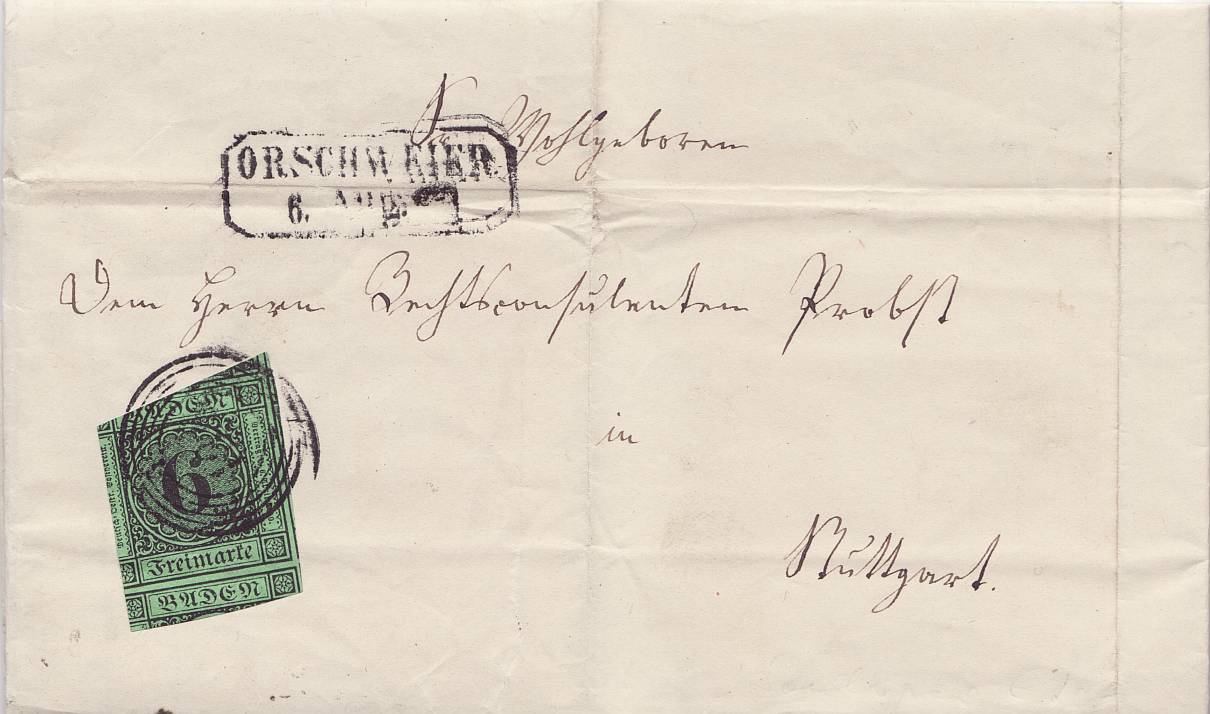 Sr Wohlgeboren
ORSCHWEIER
6.
Dem Herrn Rechtsconsulenten Probst
BADEN
6
Freimarke
BADEN
in
Stuttgart.